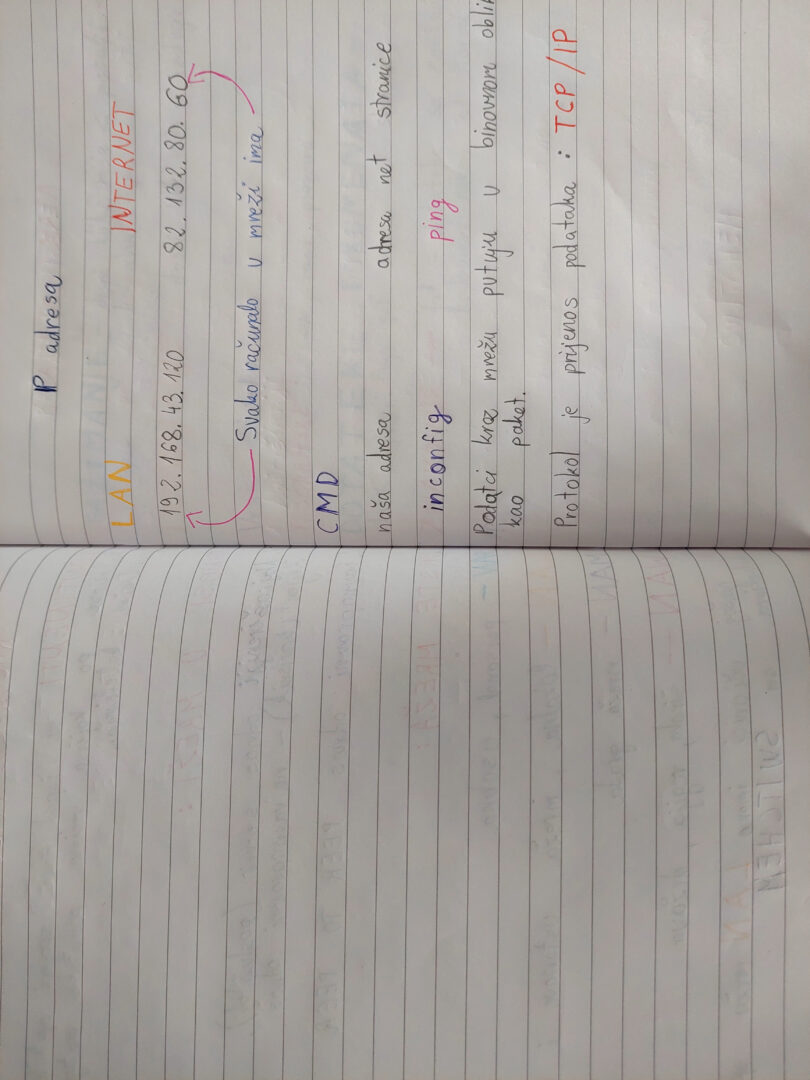 IP adresa
LAN INTERNET
192.168.43.120 82.132.80.60
Svako računalo u mreži ima
CMD
naša adresa adresa net stranice
inconfig ping
Podatci kroz mrežu putuju u binovnom obli
kao paket.
Protokol je prijenos podataka : TCP/IP